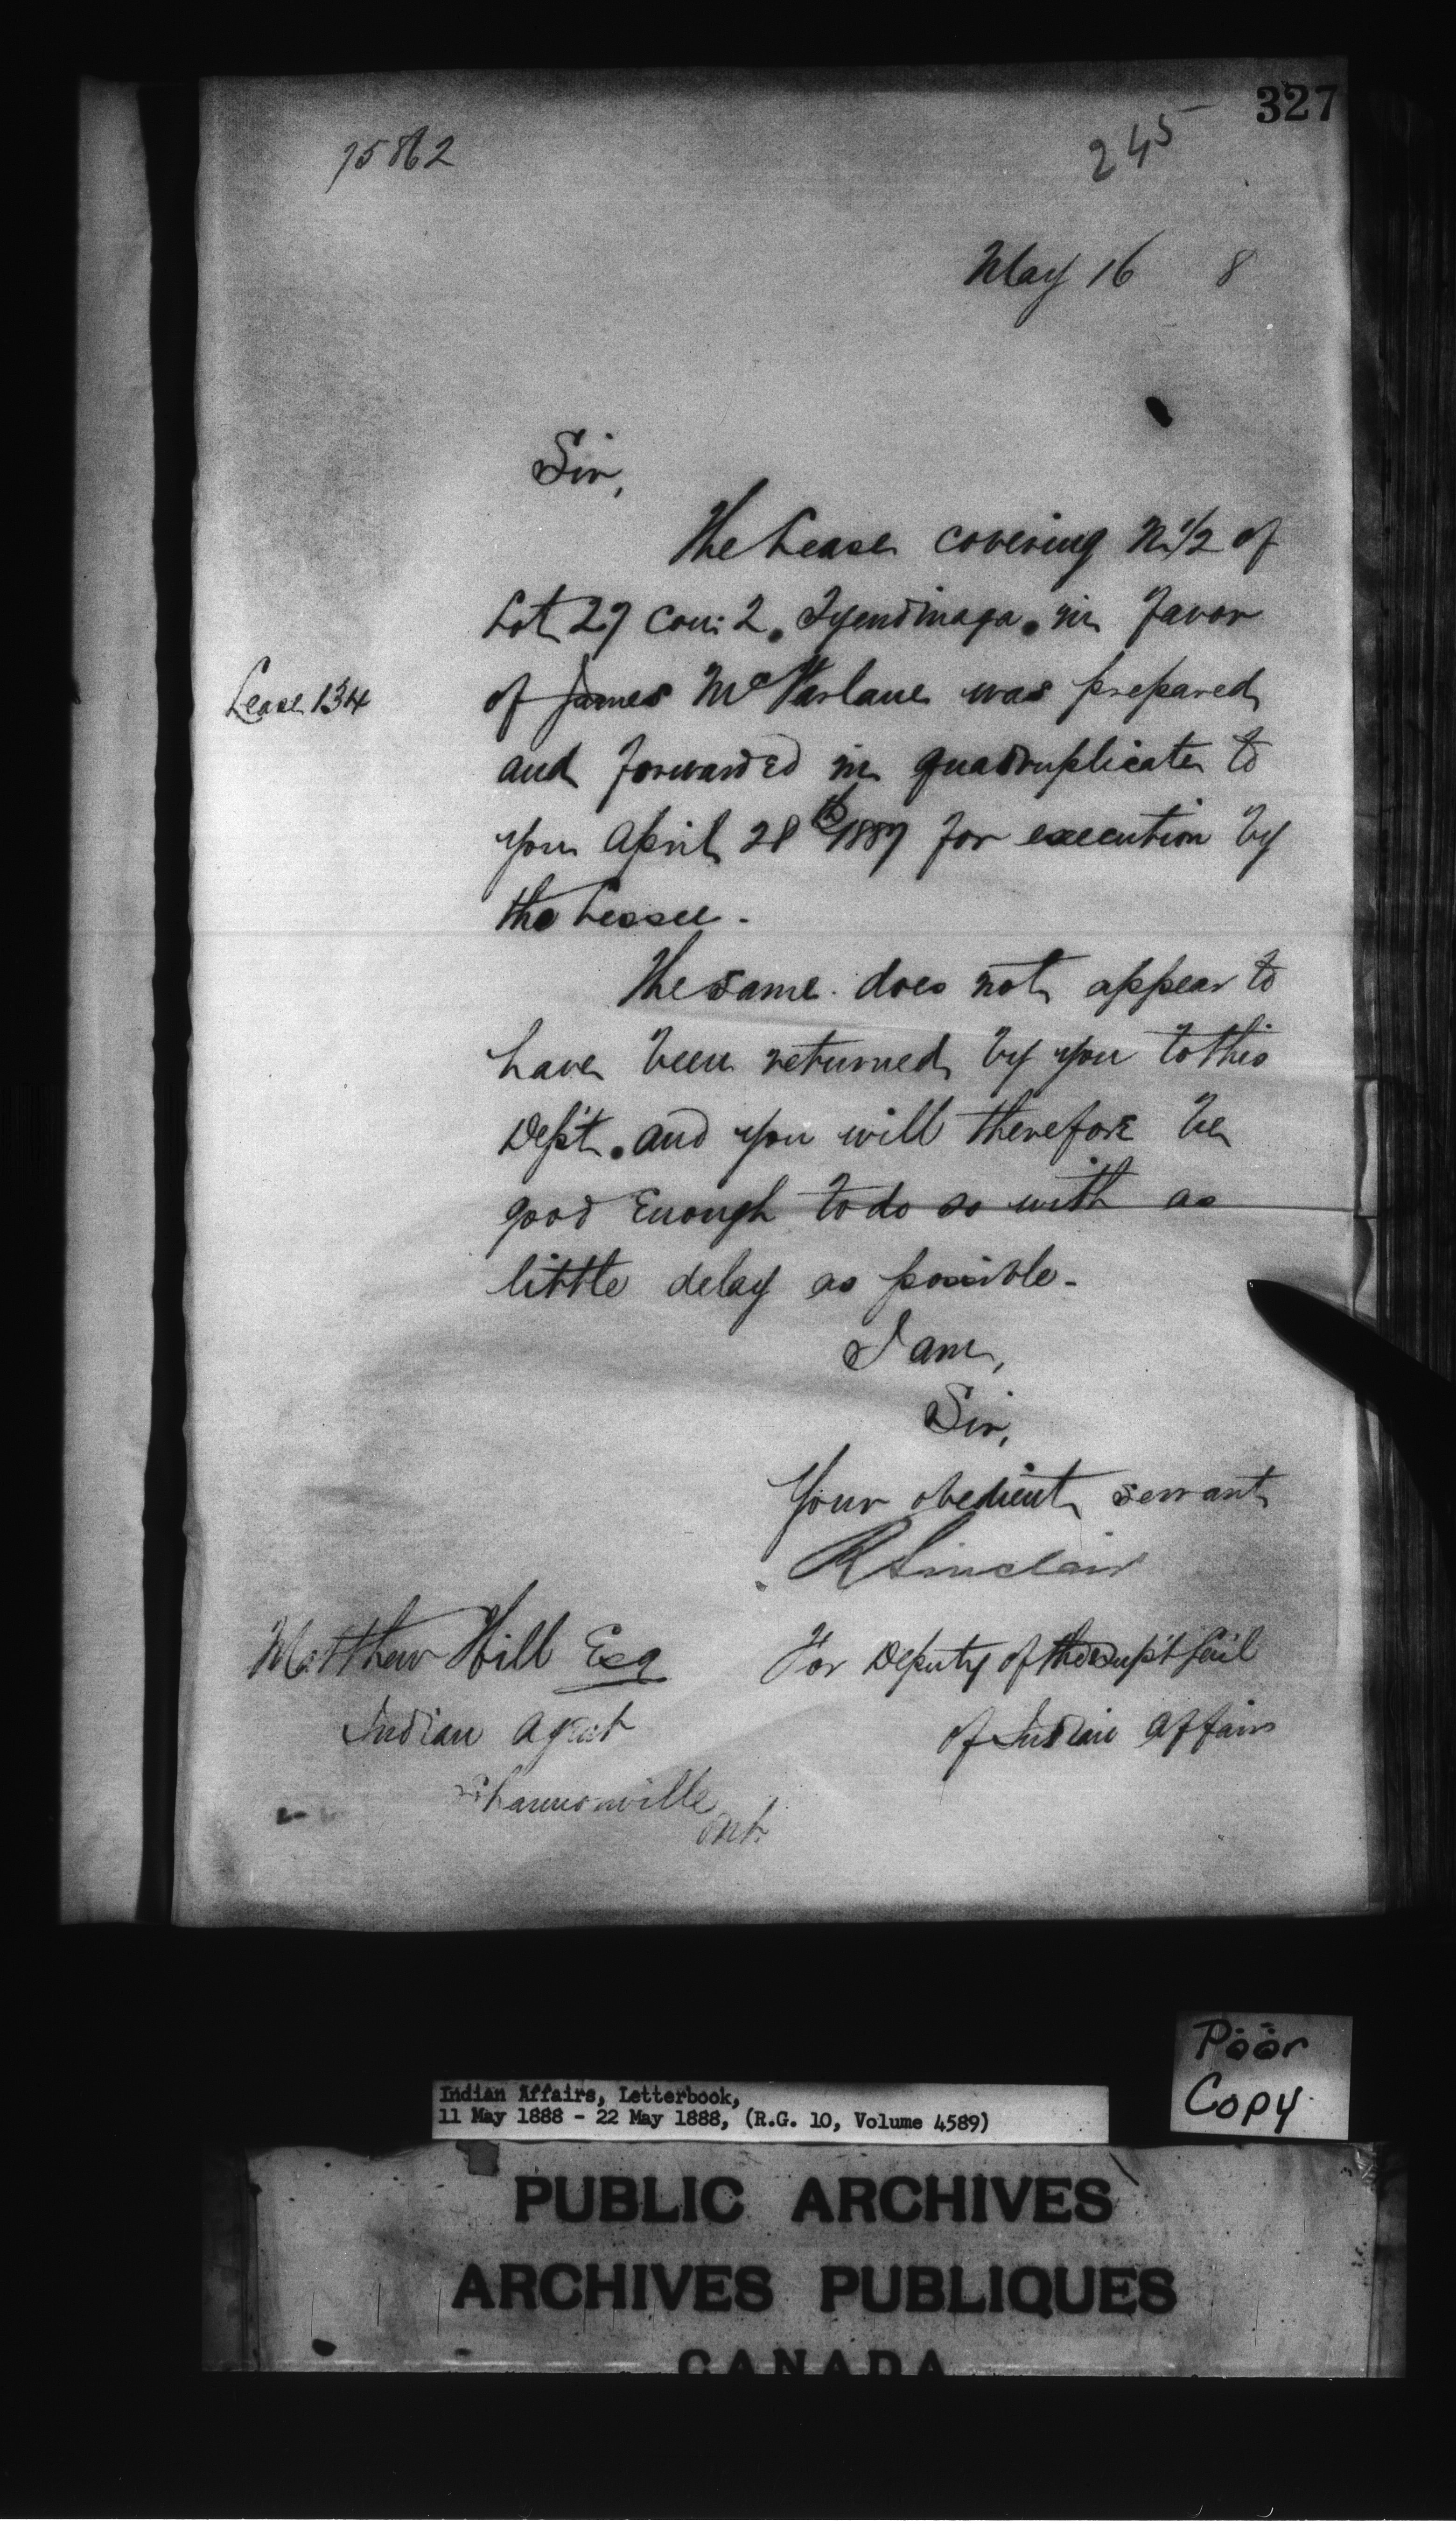 327
245
75862
May 16 8
Sir,
The Lease covering N. 1/2 of
Lot 27 Con: 2. Tyendinaga. in favor
Lease 134
of James McFarlane was prepared
and forwarded in quadruplicate to
you April 28th 1887 for execution by
the Lessee.
The same does not appear to
have been returned by you to this
Dep't. and you will therefore be
good enough to do so with as
little delay as possible.
I am,
Sir,
Your obedient servant
R Sinclair
For Deputy of the Sup't Gen'l
of Indian Affairs
Matthew Hill Esq
Indian Agent
Shannonville
Ont.
Poor
Copy
Indian Affairs, Letterbook,
11 May 1888 - 22 May 1888, (R.G. 10, Volume 4589)
PUBLIC ARCHIVES
ARCHIVES PUBLIQUES
CANADA